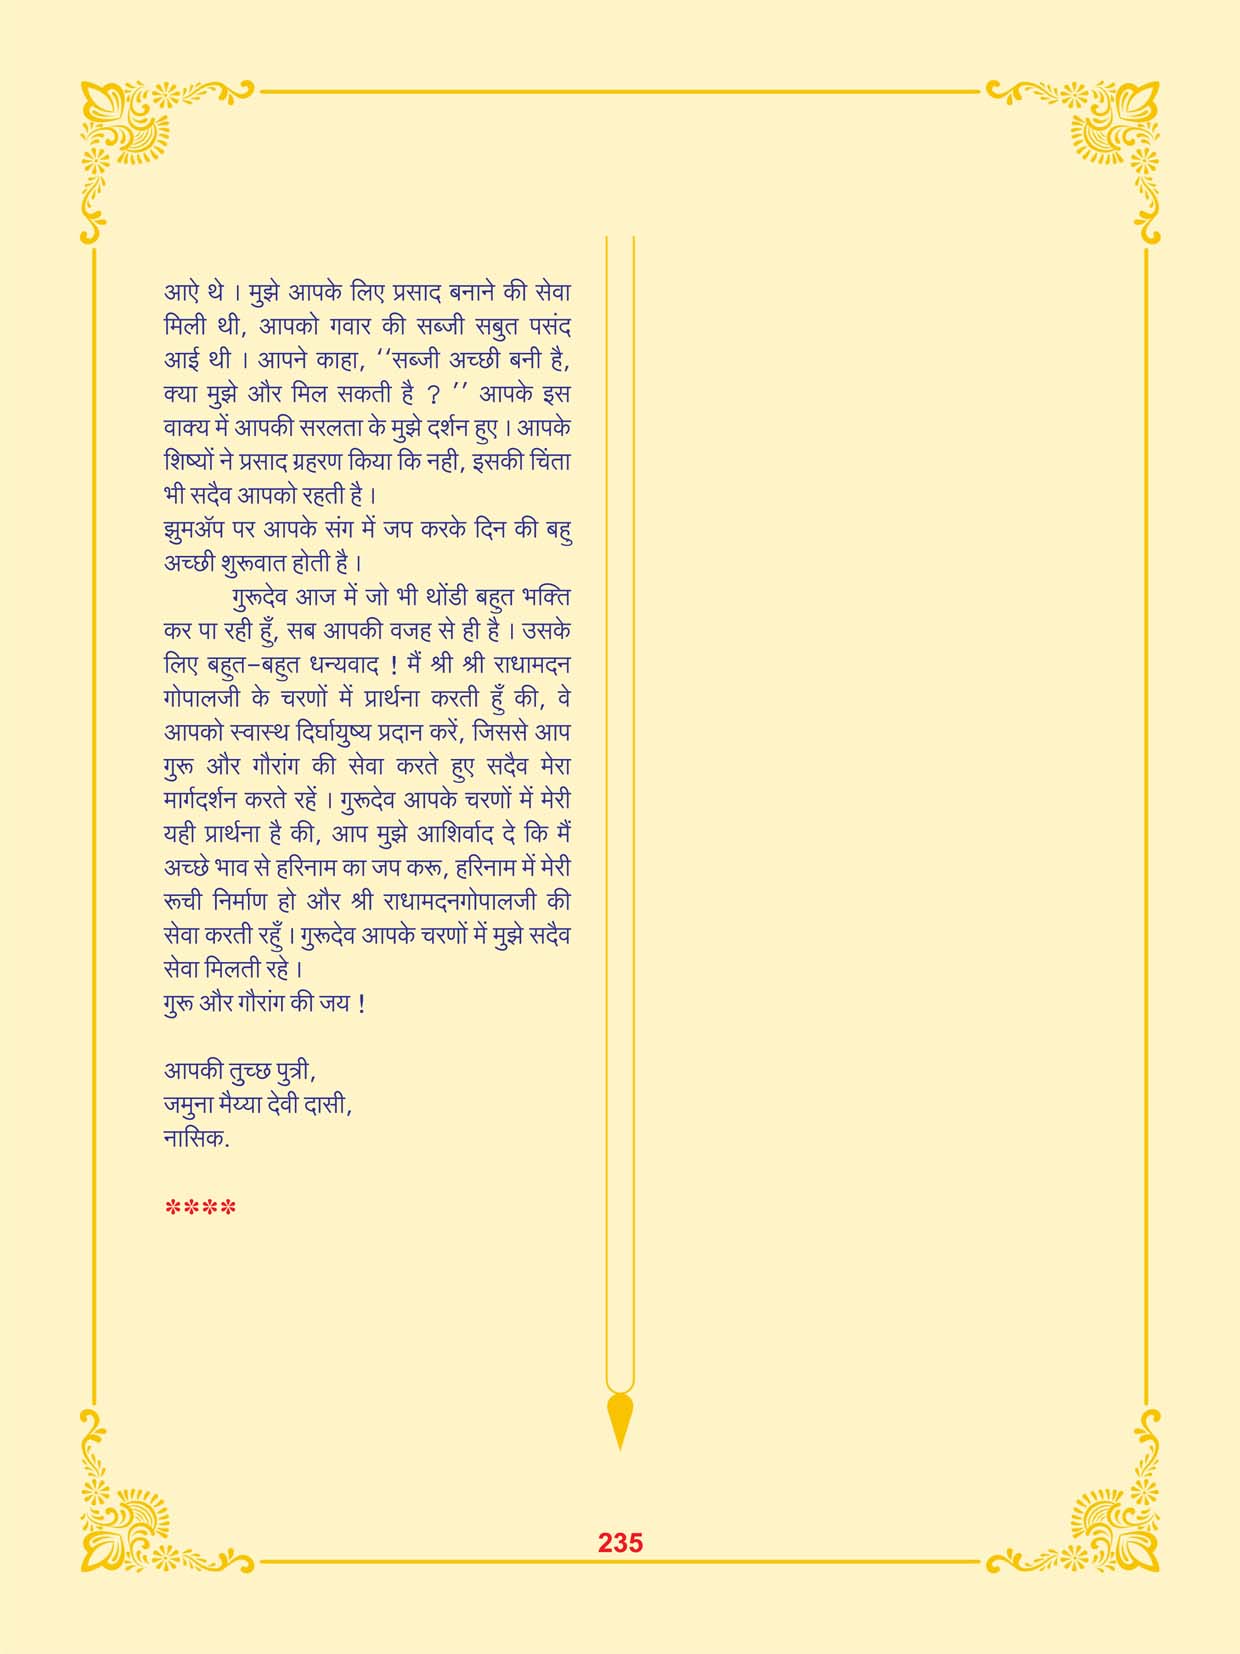 आऐ थे । मुझे आपके लिए प्रसाद बनाने की सेवा
मिली थी, आपको गवार की सब्जी सबुत पसंद
आई थी । आपने काहा, ‘‘सब्जी अच्छी बनी है,
क्या मुझे और मिल सकती है ? ’’ आपके इस
वाक्य में आपकी सरलता के मुझे दर्शन हुए । आपके
शिष्यों ने प्रसाद ग्रहरण किया कि नही, इसकी चिंता
भी सदैव आपको रहती है ।
झुमॲप पर आपके संग में जप करके दिन की बहु
अच्छी शुरूवात होती है ।
गुरूदेव आज में जो भी थोंडी बहुत भक्ति
कर पा रही हुँ, सब आपकी वजह से ही है । उसके
लिए बहुत–बहुत धन्यवाद ! मैं श्री श्री राधामदन
गोपालजी के चरणों में प्रार्थना करती हुँ की, वे
आपको स्वास्थ दिर्घायुष्य प्रदान करें, जिससे आप
गुरू और गौरांग की सेवा करते हुए सदैव मेरा
मार्गदर्शन करते रहें । गुरूदेव आपके चरणों में मेरी
यही प्रार्थना है की, आप मुझे आशिर्वाद दे कि मैं
अच्छे भाव से हरिनाम का जप करू, हरिनाम में मेरी
रूची निर्माण हो और श्री राधामदनगोपालजी की
सेवा करती रहुँ । गुरूदेव आपके चरणों में मुझे सदैव
सेवा मिलती रहे ।
गुरू और गौरांग की जय !
आपकी तुच्छ पुत्री,
जमुना मैय्या देवी दासी,
नासिक.
****
235